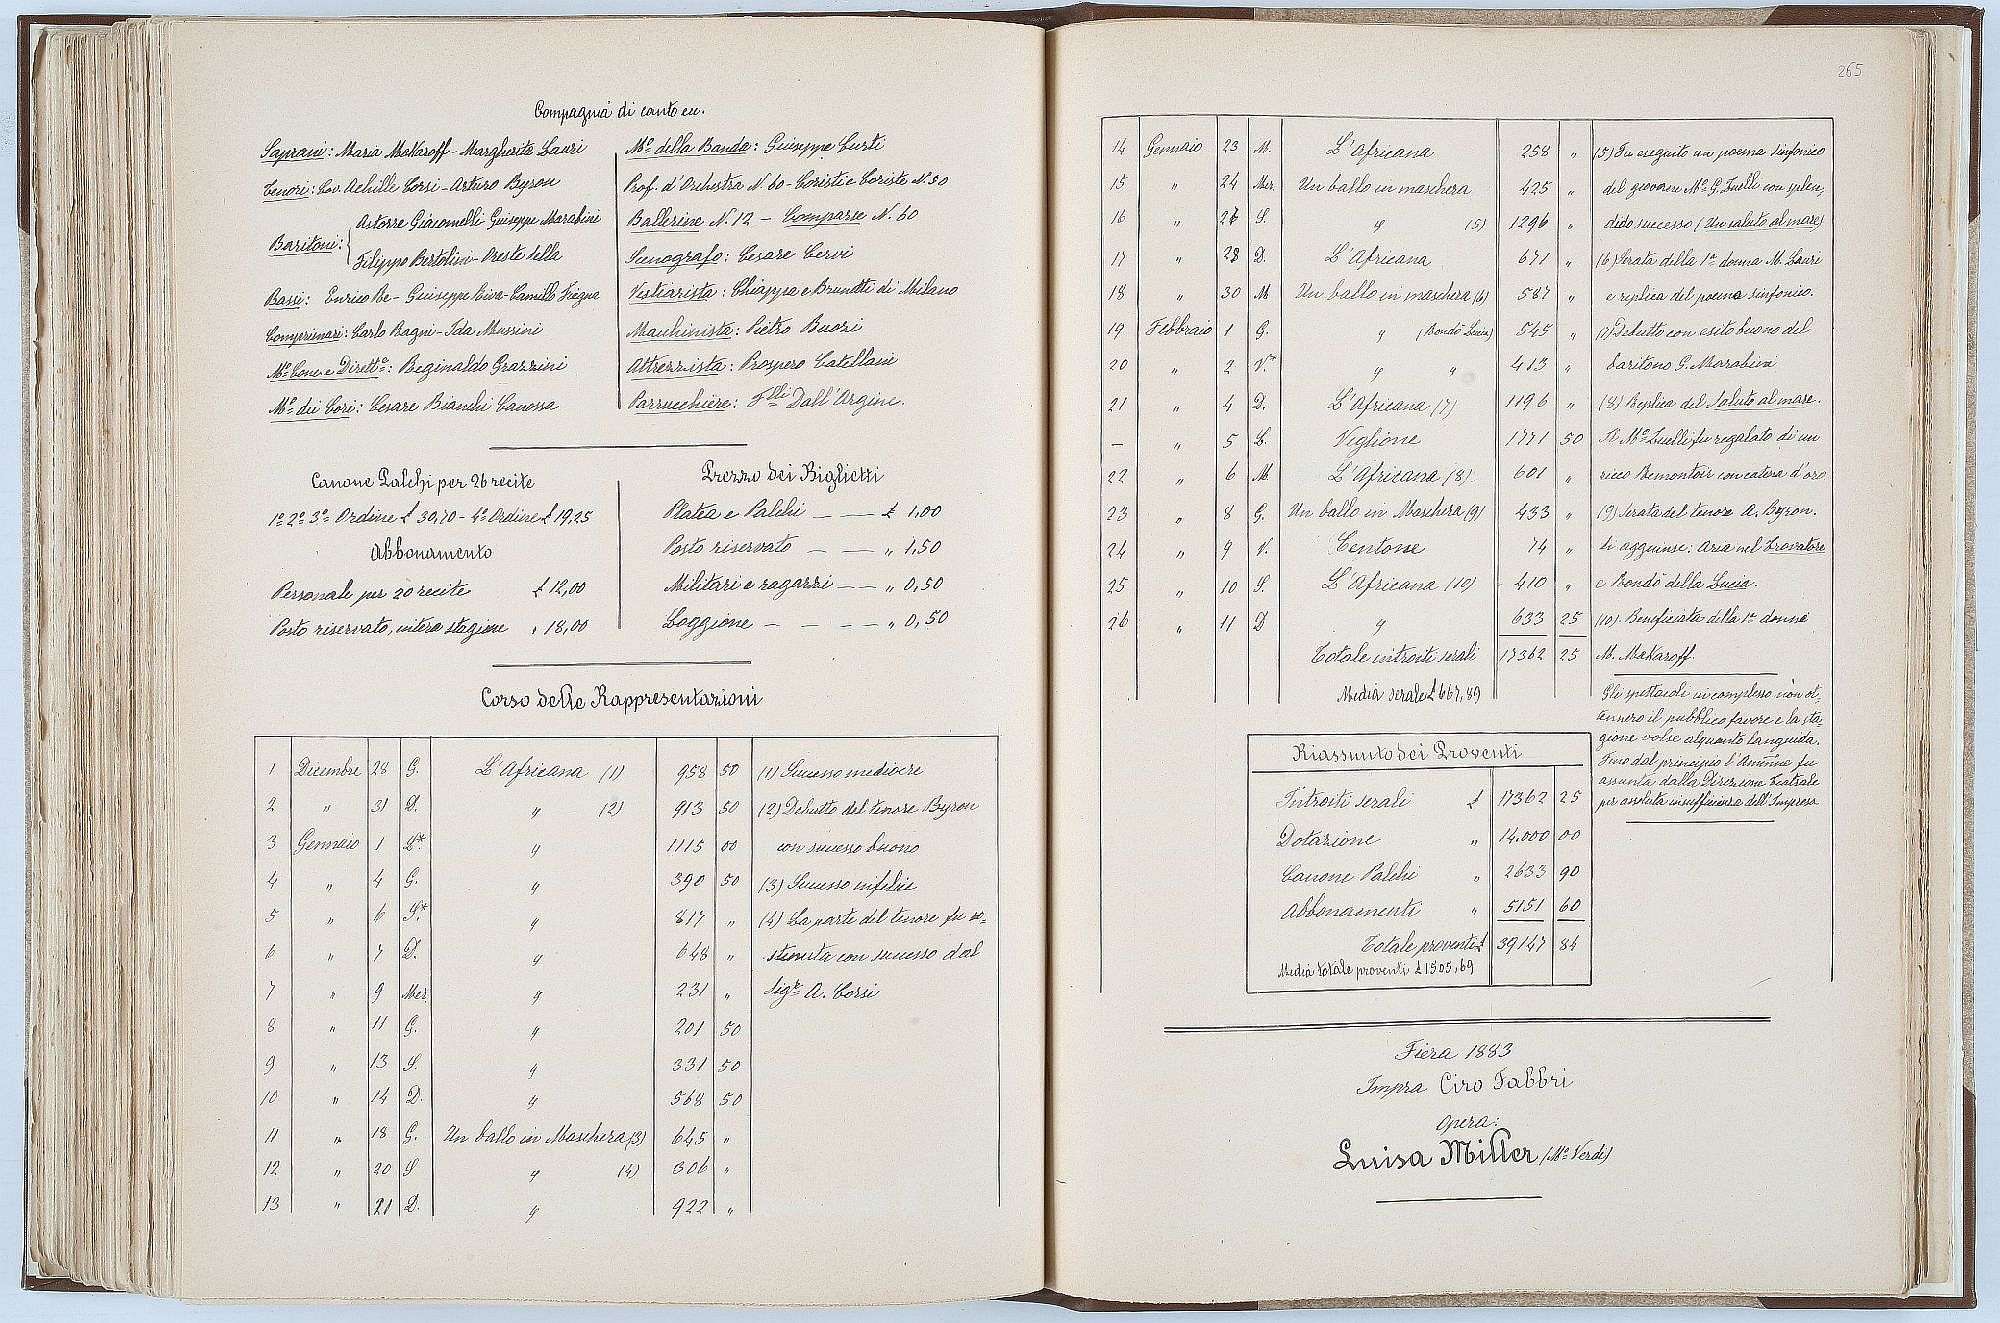 Compagnia di canto ecc.
Soprani: Maria Makaroff - Margherita Lauri
Tenori: Cav. Achille Corsi - Arturo Byron
Baritoni: Astorre Giacomelli Giuseppe Marabini
Filippo Bertolini - Oreste della
Bassi: Enrico Be - Giuseppe Cive - Camillo Fiegna
Comprimari: Carlo Bagni - Ida Mussini
Mº Conc. e Diretto: Reginaldo Grazzini
Mº dei Cori: Cesare Bianchi Canossa
Mº della Banda: Giuseppe Curti
Prof. d'Orchestra N. 60 - Coristi e Coriste N. 50
Ballerine N. 12 - Comparse N. 60
Scenografo: Cesare Cervi
Vestiarista: Chiappa e Brunetti di Milano
Macchinista: Pietro Buozi
Attrezzista: Prospero Catellani
Parrucchiere: F.lli Dall'Argine.
Canone Palchi per 26 recite
1º 2º 3º Ordine £ 30,70 - 4º Ordine £ 19,25
Abbonamento
Personale per 20 recite £ 12,00
Posto riservato, intera stagione " 18,00
Prezzo dei Biglietti
Platea e Palchi — — £ 1,00
Posto riservato — — " 1,50
Militari e ragazzi — — " 0,50
Loggione — — — " 0,50
Corso delle Rappresentazioni
1 Dicembre 28 G. L'Africana (1) 958 50 (1) Successo mediocre
2 " 31 D. " (2) 913 50 (2) Debutto del tenore Byron
3 Gennaio 1 L* " 1115 00 con successo buono
4 " 4 G. " 390 50 (3) Successo infelice
5 " 6 S.* " 817 " (4) La parte del tenore fu so-
6 " 7 D. " 648 " stenuta con successo dal
7 " 9 Mer. " 231 " Sigr A. Corsi
8 " 11 G. " 201 50
9 " 13 S. " 331 50
10 " 14 D. " 568 50
11 " 18 G. Un ballo in Maschera (3) 645 "
12 " 20 S " (4) 306 "
13 " 21 D. " 922 "
265
14 Gennaio 23 M. L'Africana 258 " (5) Fu eseguito un poema sinfonico
15 " 24 Mer Un ballo in maschera 425 " del giovane Mº G. Zuelli con splen,
16 " 27 S. " (5) 1296 " dido successo (Un saluto al mare)
17 " 28 D. L'Africana 671 " (6) Serata della 1ª donna M. Lauri
18 " 30 M Un ballo in maschera (6) 587 " e replica del poema sinfonico.
19 Febbraio 1 G. " (Rondò Lucia) 545 " (7) Debutto con esito buono del
20 " 2 V.* " " 413 " baritono G. Marabini
21 " 4 D. L'Africana (7) 1196 " (8) Replica del Saluto al mare.
— " 5 L. Veglione 1771 50 Il Mº Zuelli fu regalato di un
22 " 6 M. L'Africana (8) 601 " ricco Remontoir con catena d'oro
23 " 8 G. Un ballo in Maschera (9) 433 " (9) Serata del tenore A. Byron.
24 " 9 V. Centone 74 " Si aggiunse: Aria nel Trovatore
25 " 10 S. L'Africana (10) 410 " e Rondò della Lucia.
26 " 11 D " 633 25 (10) Beneficiata della 1ª donna
Totale introiti serali 17362 25 M. Makaroff.
Media serale £ 667,89
Gli spettacoli in complesso non ot-
tennero il pubblico favore e la sta-
gione volse alquanto languida.
Fino dal principio l'Ammne fu
assunta dalla Direzione Teatrale
per assoluta insufficienza dell'Impresa
Riassunto dei Proventi
Introiti serali £ 17362 25
Dotazione " 14.000 00
Canone Palchi " 2633 90
Abbonamenti " 5151 60
Totale proventi £ 39147 84
Media totale proventi £ 1505,69
Fiera 1883
Impra Ciro Fabbri
Opera:
Luisa Miller (Mº Verdi)